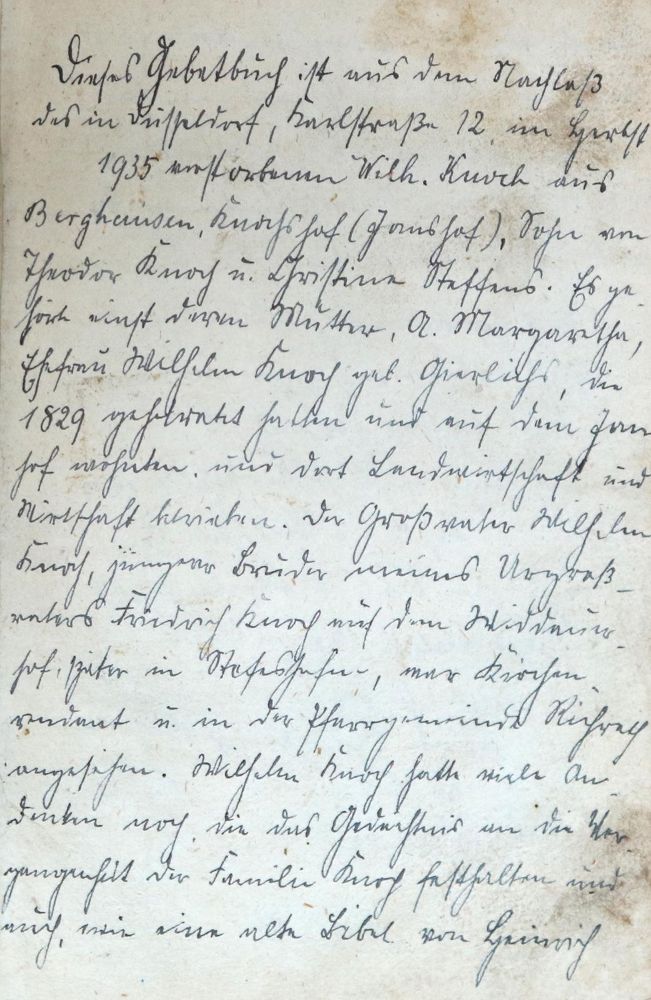 Dieses Gebetbuch ist aus dem Nachlaß
des in Düsseldorf, Karlstraße 12, im Herbst
1935 verstorbenen Wilh. Knoch aus
Berghausen, Knochshof (Janshof), Sohn von
Theodor Knoch u. Christine Steffens. Es ge-
hörte einst deren Mutter, A. Margaretha,
Ehefrau Wilhelm Knoch geb. Gierlichs, die
1829 geheiratet hatten und auf dem Jans
hof wohnten, und dort Landwirtschaft und
Wirtschaft betrieben. Der Großvater Wilhelm
Knoch, jüngerer Bruder meines Urgroß-
vaters Friedrich Knoch auf dem Widdauer-
hof, später in, war Kirchen
rendant u. in der Pfarrgemeinde Richrath
angesehen. Wilhelm Knoch hatte viele An-
denken noch, die das Gedächtnis an die Ver-
gangenheit der Familie Knoch festhalten und
auch, wie eine alte Bibel von Heinrich